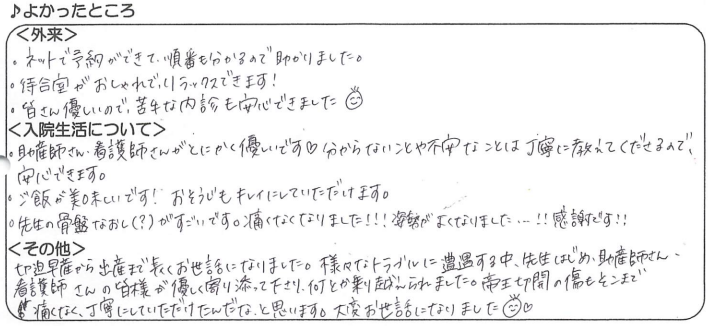 ♪よかったところ
<外来>
・ネットで予約ができて、順番も分かるので助かりました。
・待合室がおしゃれで、リラックスできます!
・皆さん優しいので、苦手な内診も安心できました
<入院生活について>
・助産師さん、看護師さんがとにかく優しいです♡分からないことや不安なことは丁寧に教えてくださるので、
安心できます。
・ご飯が美味しいです! おそうじもキレイにしていただけます。
・先生の骨盤なおし(?)がすごいです。痛くなくなりました!!!姿勢がよくなりました…!!感謝です!!
<その他>
切迫早産から出産まで長くお世話になりました。様々なトラブルに遭遇する中、先生はじめ、助産師さん、
看護師さんの皆様が優しく寄り添って下さり、何とか乗り越えられました。帝王切開の傷もそこまで
痛くなく、丁寧にしていただけたんだな、と思います。大変お世話になりました♡